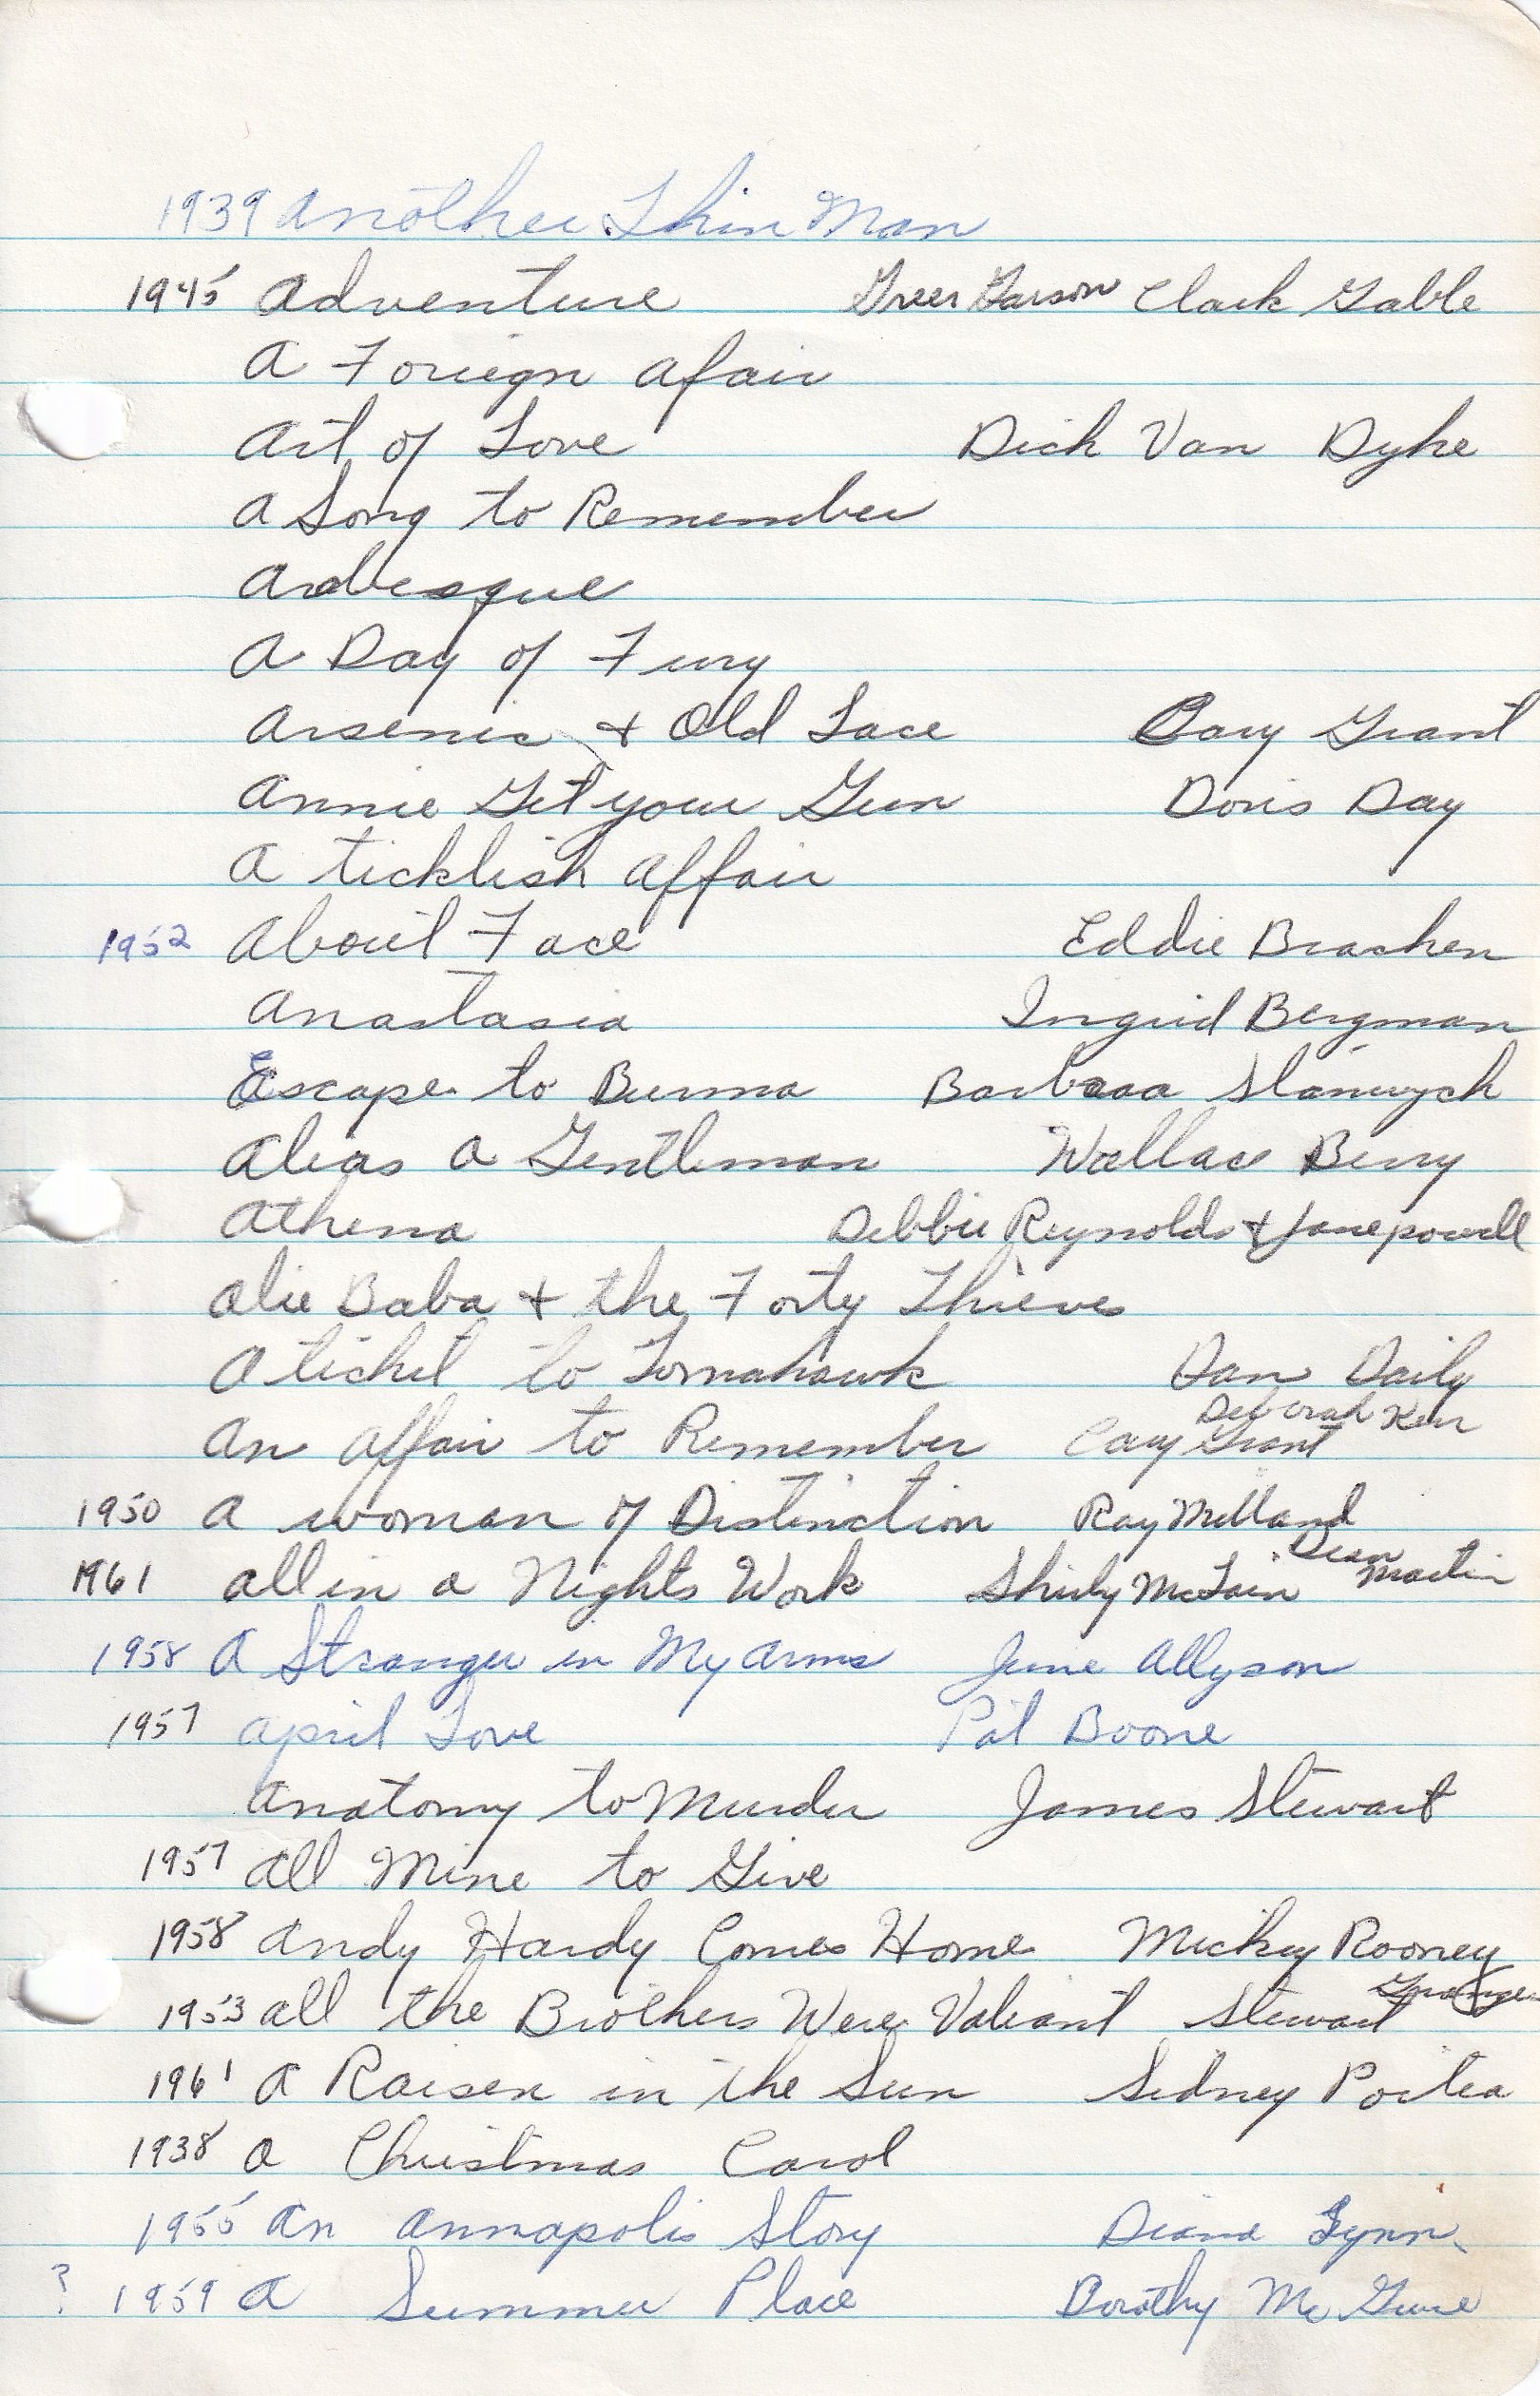 1939 Another Thin Man
1945 Adventure Greer Garson Clark Gable
A Foriegn Afair
Art of Love Dick Van Dyke
A Song to Remember
Arabesque
A Day of Fury
Arsenic + Old Lace Cary Grant
Annie Get your Gun Doris Day
A ticklish Affair
1952 About Face Eddie Bracken
Anastasia Ingrid Bergman
Escape to Burma Barbaaa Stanwyck
Alias a Gentleman Wallace Berry
Athena Debbie Reynolds + Jane powell
Alie Baba + the Forty Thieves
A ticket to Tomahawk Dan Daily
Deborah Kerr
An Affair to Remember Cary Grant
1950 A woman of Distinction Ray Milland
Dean
1961 All in a Nights Work Shirly McLain Martin
1958 A Stranger in My Arms June Allyson
1957 April Love Pat Boone
Anatomy to Murder James Stewart
1957 All Mine to Give
1958 Andy Hardy Comes Home Mickey Rooney
Granger
1953 All the Brothers Were Valiant Stewart
1961 A Raisen in the Sun Sidney Poitea
1938 A Christmas Carol
1955 An Annapolis Story Diana Lynn
? 1959 A Summer Place Dorothy Mc Guire